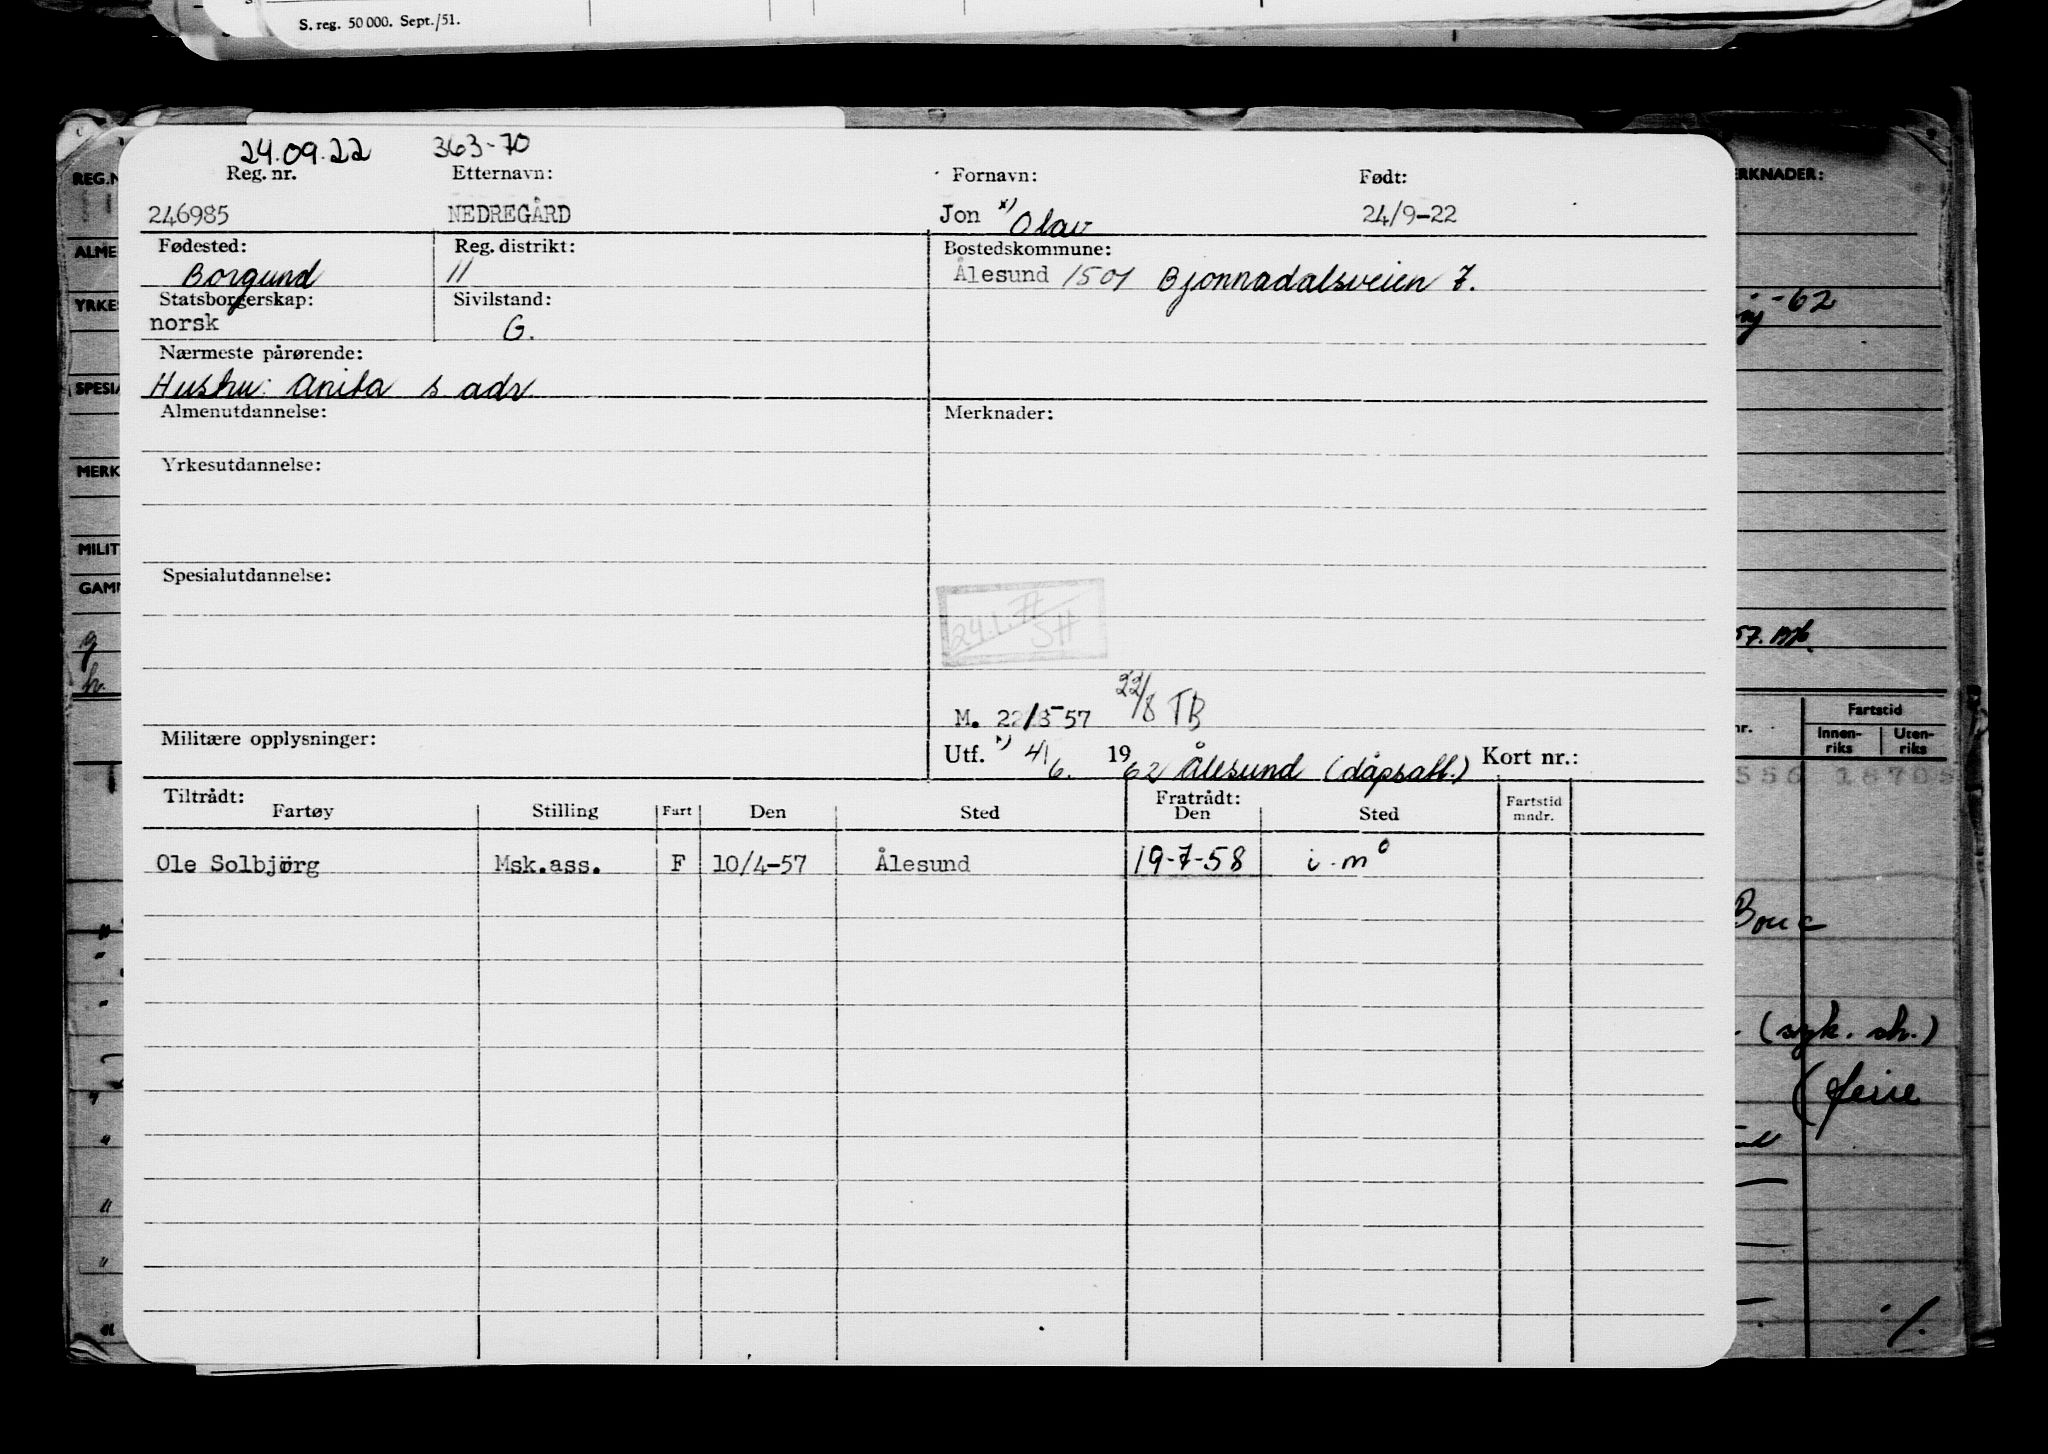 S. reg. 50 000. Sept./51.
24.09.22 363-70
Reg. nr. Etternavn: Fornavn: Født:
246985 NEDREGÅRD Jon x) Olav 24/9-22
Fødested: Reg. distrikt: Bostedskommune:
Borgund 11 Ålesund 1501 Bjonnadalsveien 7.
Statsborgerskap: Sivilstand:
norsk G.
Nærmeste pårørende:
Hustru: Anita s. adr.
Almenutdannelse: Merknader:
Yrkesutdannelse:
Spesialutdannelse:
M. 22/8-57 22/8 TB
Militære opplysninger: Utf. x) 4/6. 1962 Ålesund (dåpsatt.) Kort nr.:
Tiltrådt: Fratrådt:
Fartøy Stilling Fart Den Sted Den Sted Fartstid mndr.
Ole Solbjørg Msk.ass. F 10/4-57 Ålesund 19-7-58 i.m°
REG.N
ALME
YRKE
SPESIA
MERK
MILIT
GAMM
ERKNADER:
-62
57.
Fartstid
nr. Innen-riks Uten-riks
556 18705
Bouc
(syk. sh.)
(ferie